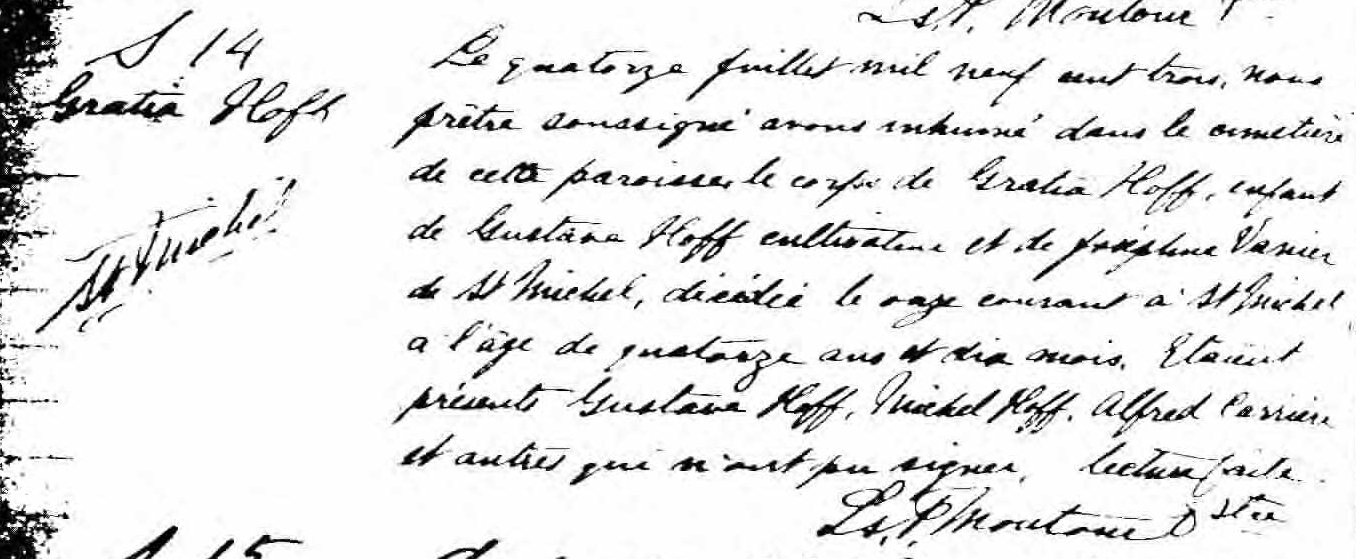 Ls. P. Moutour ptre
S 14
Gratia Hoff
St Michel
Le quatorze juillet mil neuf cent trois, nous
prêtre soussigné avons inhumé dans le cimetière
de cette paroisse, le corps de Gratia Hoff, enfant
de Gustave Hoff cultivateur et de Joséphine Vanier
de St Michel, décédée le onze courant à St Michel
a l'âge de quatorze ans et dix mois. Etaient
présents Gustave Hoff, Michel Hoff, Alfred Carrière
et autres qui n'ont pu signer. lecture faite.
Ls. P. Moutour ptre
S 15